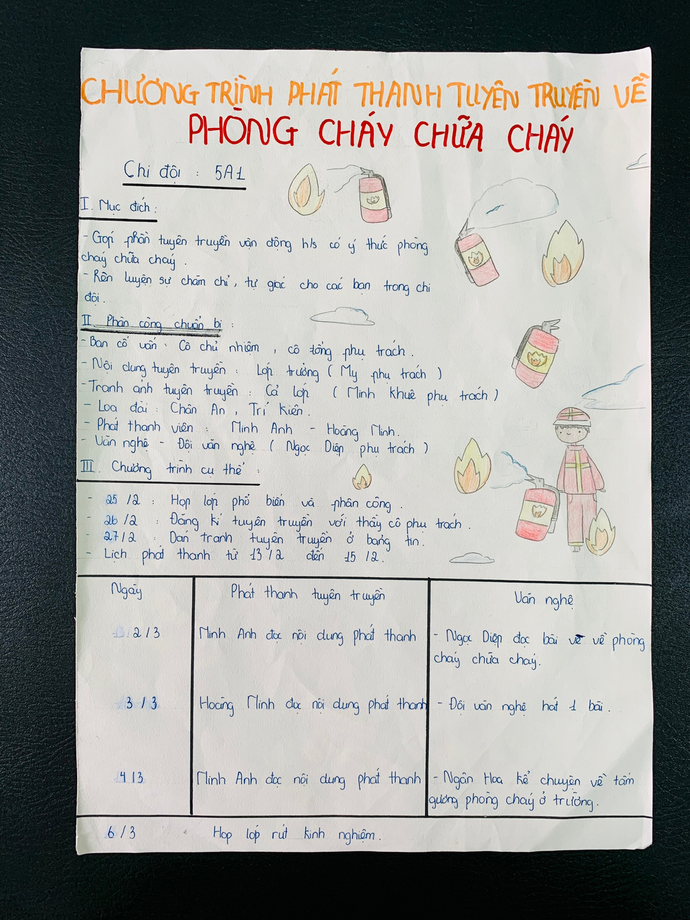 CHƯƠNG TRÌNH PHÁT THANH TUYÊN TRUYỀN VỀ
PHÒNG CHÁY CHỮA CHÁY
Chi đội : 5A1
I. Mục đích :
- Góp phần tuyên truyền vận động h/s có ý thức phòng
cháy chữa cháy.
- Rèn luyện sự chăm chỉ, tự giác cho các bạn trong chi
đội.
II. Phân công chuẩn bị :
- Ban cố vấn : Cô chủ nhiệm, cô tổng phụ trách.
- Nội dung tuyên truyền : Lớp trưởng ( My phụ trách )
- Tranh ảnh tuyên truyền : Cả lớp ( Minh Khuê phụ trách )
- Loa đài : Chấn An, Trí Kiên.
- Phát thanh viên : Minh Anh - Hoàng Minh.
- Văn nghệ - Đội văn nghệ ( Ngọc Diệp phụ trách )
III. Chương trình cụ thể :
- 25/2 : Họp lớp phổ biến và phân công.
- 26/2 : Đăng kí tuyên truyền với thầy cô phụ trách.
- 27/2 : Dán tranh tuyên truyền ở bảng tin.
- Lịch phát thanh từ 13/2 đến 15/2.
Ngày Phát thanh tuyên truyền Văn nghệ
2/3 Minh Anh đọc nội dung phát thanh - Ngọc Diệp đọc bài vè về phòng
cháy chữa cháy.
3/3 Hoàng Minh đọc nội dung phát thanh - Đội văn nghệ hát 1 bài.
4/3 Minh Anh đọc nội dung phát thanh - Ngân Hoa kể chuyện về tấm
gương phòng cháy ở trường.
6/3 Họp lớp rút kinh nghiệm.